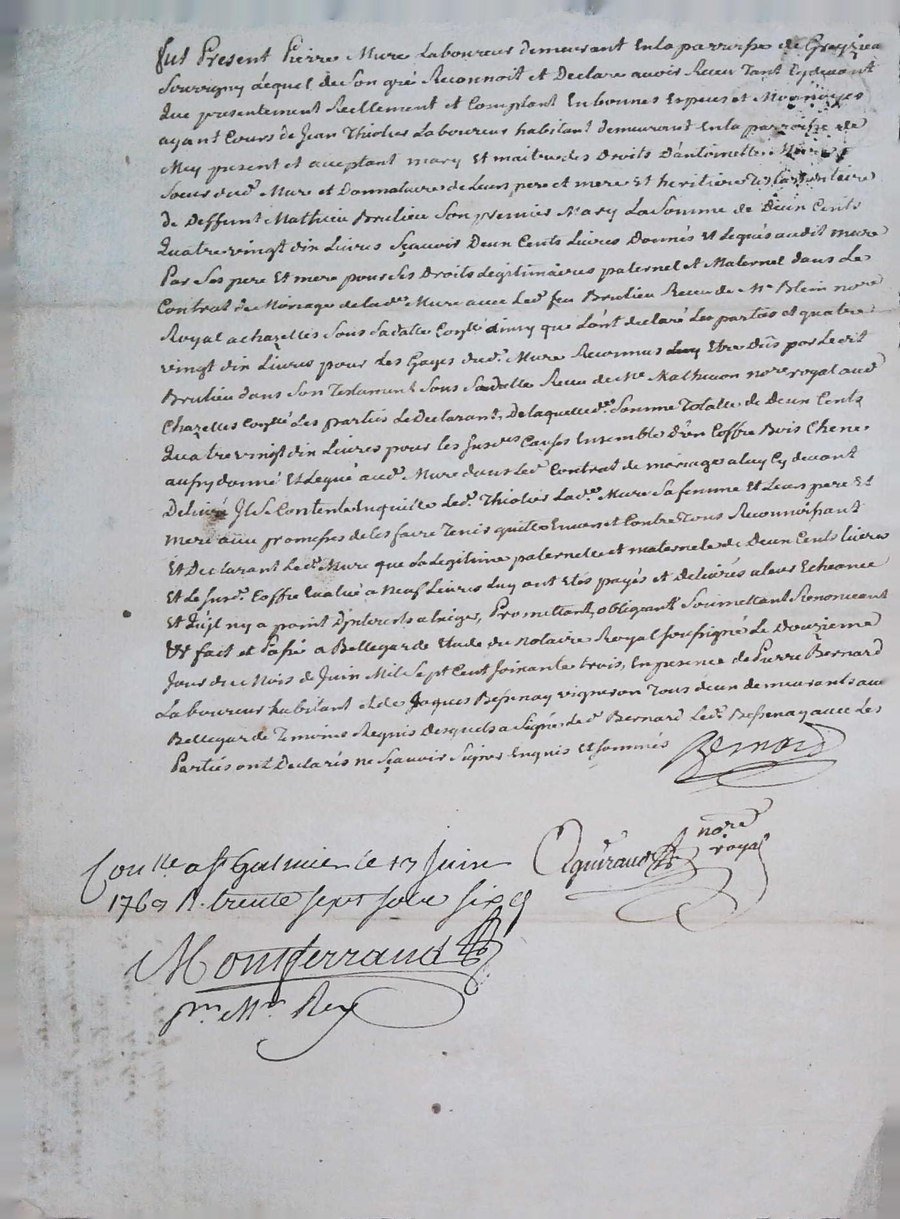 fut Present Pierre Mure Laboureur demeurant En la parroisse de Greyzieu
Souvigny Lequel de Son gré Reconnoit et Declare avoir Receu Tant Cydevant
Que presentement Reellement et Comptant En bonnes Especes et Monnoyes
ayant Cours de Jean Thiolier Laboureur habitant demeurant En la parroisse de
present et acceptant mary Et maitre des Droits D'antoinette Mure
Soeur dud. Mure et Donnataire de Leurs pere et mere Et heritiere Testamentaire
de Deffunt Mathieu Brulieu Son premier Mary La Somme de Deux Cents
Quatre vingt dix Livres Sçavoir Deux Cents Livres Donnés Et Legués audit mure
Par Ses pere Et mere pour Ses Droits Legitimaires paternel et Maternel dans Le
Contrat de Mariage de lade. Mure avec Led. feu Brulieu Receu de Me Blein nore
Royal a chazelles Sous Sadatte Conllé que L'ont declaré Les parties et quatre
vingt dix Livres pour Les Gages dud. Mure Reconnus Luy Etre Dus par Ledit
Brulieu dans Son Testament Sous Sadatte Receu de Me Mathevon nore royal aud
Chazelles Conllé Les parties Le Declarant, De laquelle de. Somme Totalle de Deux Cents
Quatre vingt dix Livres pour Les Susdes Causes Ensemble D'un Coffre Bois Chene
aussy donné Et Legué aud. Mure dans Led. Contrat de mariage a luy Cy devant
Delivré Il Se Contente En quitte Led. Thiolier Lade. Mure Sa femme Et Leurs pere Et
mere avec promesses de Les faire Tenir quitte Envers et Contre Tous Reconnoissant
Et Declarant Led. Mure que La Legitime paternelle et maternelle de Deux Cents livres
Et Le Susd. Coffre Evalué a Neuf Livres Luy ont Etés payés et Delivrés a leur Echeance
Et Qu'il n'y a point D'interets a Exiger, Promettant, obligeant Soumettant Renonceant
fait et Passé a Bellegarde Etude du Notaire Royal soussigné Le Douzieme
Jour du Mois de Juin Mil Sept Cent Soixante trois, En presence de Pierre Bernard
Laboureur habitant et de Jaques Bessenay vigneron Tous deux demeurants aud
Bellegarde Temoins Requis Desquels a Signé Le d. Bernard Led. Bessenay avec Les
Parties ont Declarés ne Sçavoir Signer Enquis et Sommés
Bernard
nore
royal
Conlle a St Galmier le 17 Juin
1763 R. trente sept sols six d
Montferrand
pr. Mr Rey